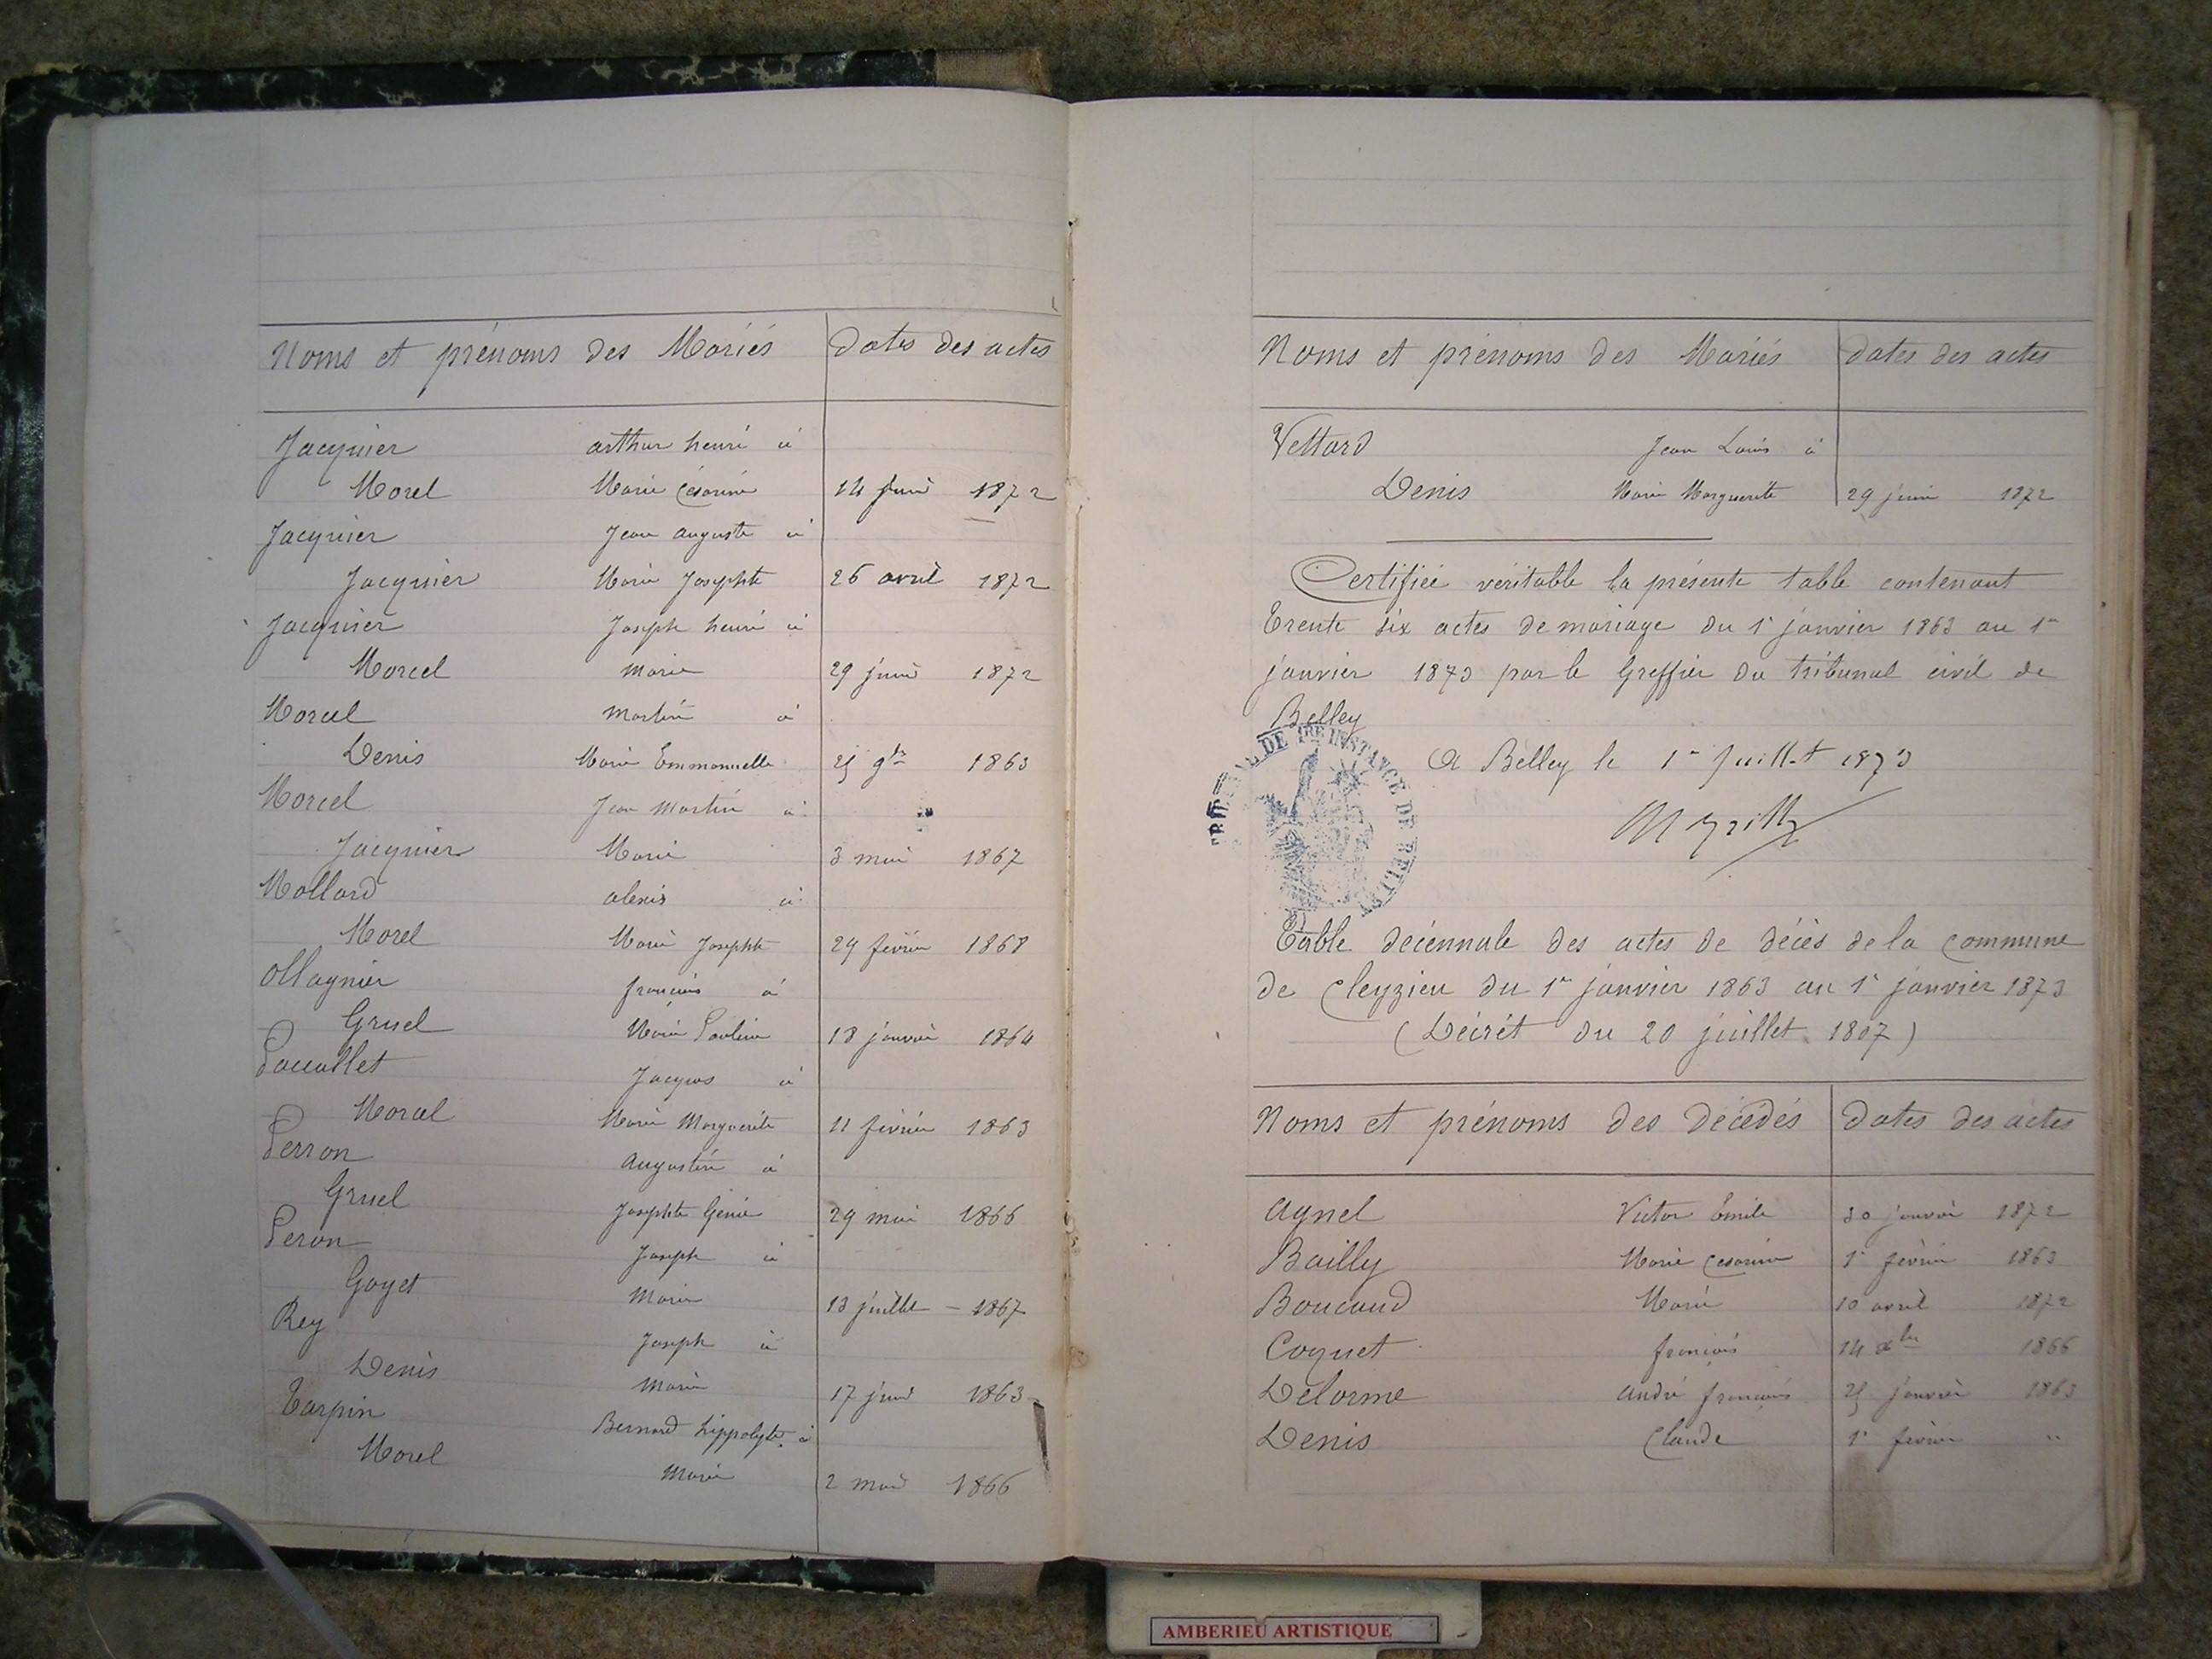 Noms et prénoms des Mariés Dates des actes
Jacquier arthur henri à
Morel Marie Césarine 14 juin 1872
Jacquier Jean auguste à
Jacquier Marie Josephte 26 avril 1872
Jacquier Joseph henri à
Marcel Marie 29 juin 1872
Marcel Martin à
Denis Marie Emmanuelle 25 9bre 1863
Marcel Jean Martin à
Jacquier Marie 3 mai 1867
Mollard alexis à
Morel Marie Josephte 29 février 1868
Ollagnier françois à
Gruel Marie Pauline 18 janvier 1864
Pacallet Jacques à
Marcel Marie Marguerite 11 février 1863
Perron Augustin à
Gruel Josephte Génie 29 mai 1866
Peron Joseph à
Goyet Marie 13 juillet - 1867
Rey Joseph à
Denis Marie 17 juin 1863
Tarpin Bernard hippolyte à
Morel Marie 2 mai 1866
Noms et prénoms des Mariés dates des actes
Vettard Jean Louis à
Denis Marie Marguerite 29 juin 1872
Certifiée véritable la présente table contenant
Trente six actes de mariage du 1r janvier 1863 au 1r
janvier 1873 par le Greffier du tribunal civil de
Belley
A Belley le 1r Juillet 1873
TRIBUNAL DE 1RE INSTANCE DE BELLEY
Table décennale des actes de décès de la commune
de Cleyzieu du 1r janvier 1863 au 1r janvier 1873
(Décrét du 20 juillet 1807)
Noms et prénoms des décédés Dates des actes
Agnel Victor Emile 30 janvier 1872
Bailly Marie Cesarine 1r février 1863
Boucaud Marie 10 avril 1872
Coquet françois 14 xbre 1866
Delorme andré françois 25 janvier 1863
Denis Claude 1r février "
AMBERIEU ARTISTIQUE